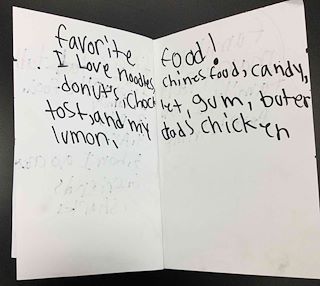 favorite food!
I Love noodles, chines food, candy,
donuts, choclet, gum, buter
tost, and my dad's chicken
lumon.